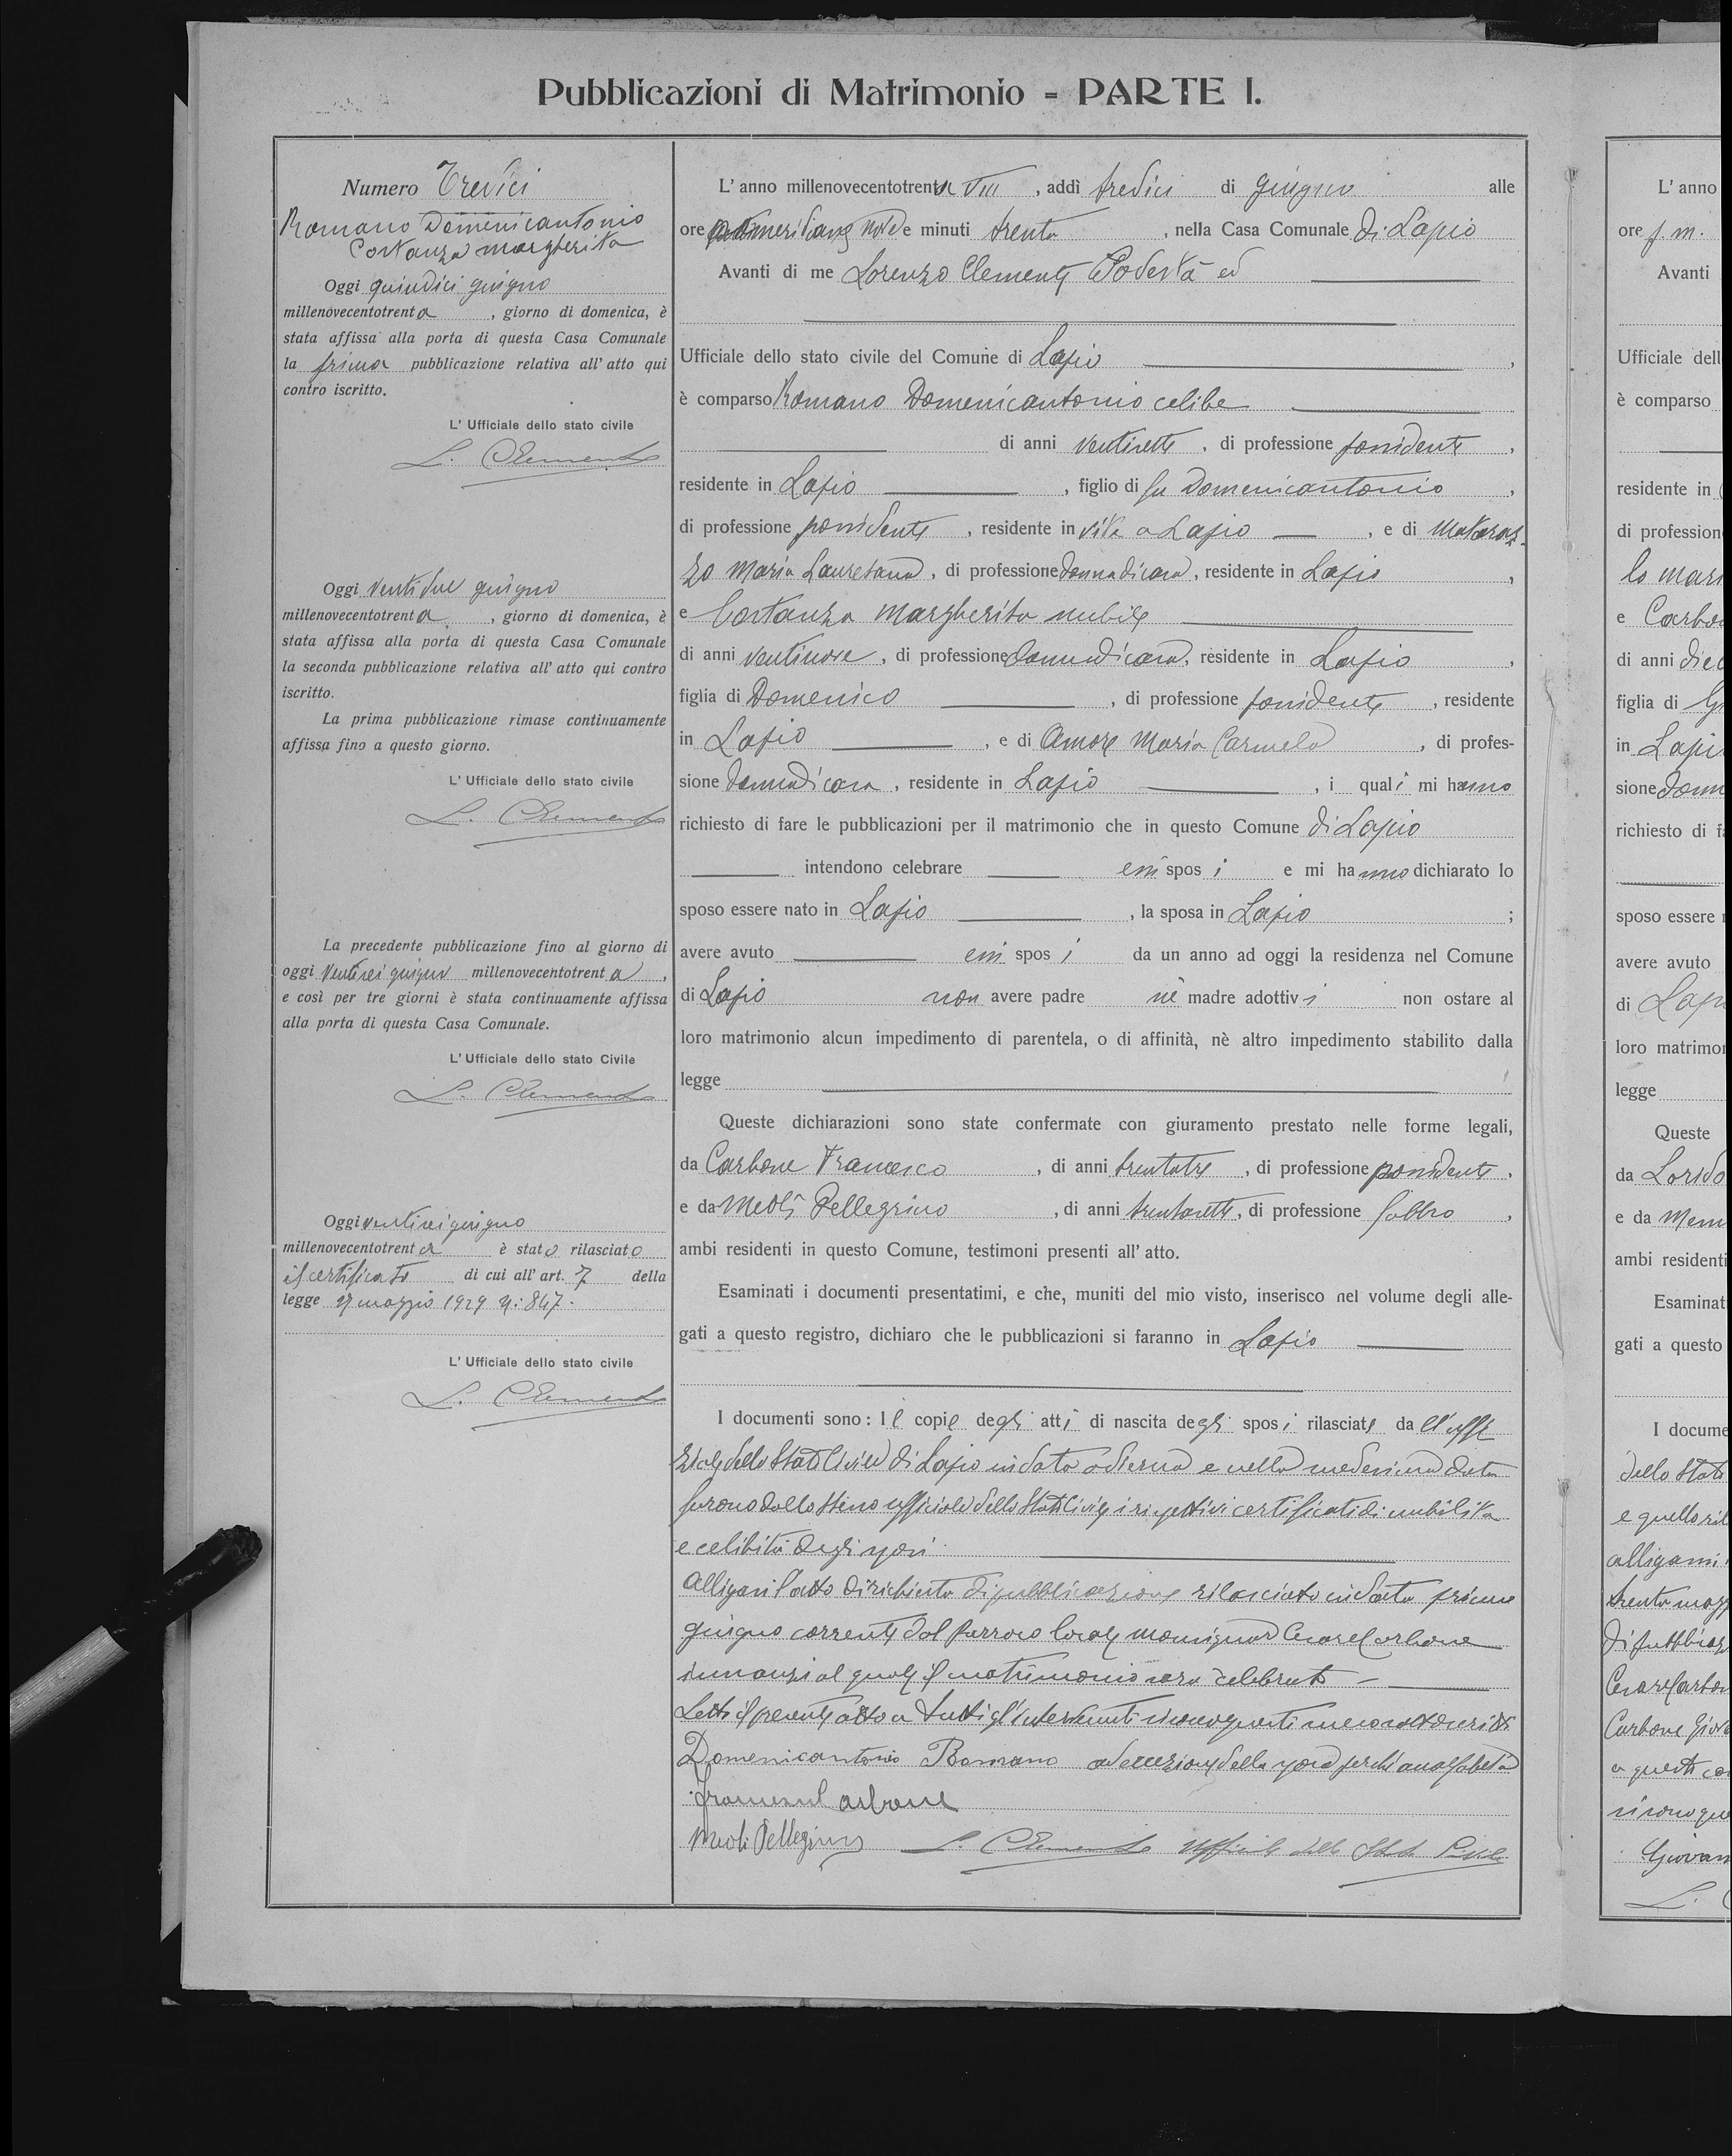 Pubblicazioni di Matrimonio - PARTE I.
Numero Tredici
Romano Domenicantonio
Costanza Margherita
Oggi quindici giugno
millenovecentotrenta , giorno di domenica, è
stata affissa alla porta di questa Casa Comunale
la prima pubblicazione relativa all' atto qui
contro iscritto.
L' Ufficiale dello stato civile
L. Clemente
Oggi ventidue giugno
millenovecentotrenta , giorno di domenica, è
stata affissa alla porta di questa Casa Comunale
la seconda pubblicazione relativa all' atto qui contro
iscritto.
La prima pubblicazione rimase continuamente
affissa fino a questo giorno.
L' Ufficiale dello stato civile
L. Clemente
La precedente pubblicazione fino al giorno di
oggi ventisei giugno millenovecentotrenta ,
e così per tre giorni è stata continuamente affissa
alla porta di questa Casa Comunale.
L' Ufficiale dello stato Civile
L. Clemente
Oggi ventisei giugno
millenovecentotrenta è stato rilasciato
il certificato di cui all' art. 7 della
legge 27 maggio 1929 N: 847.
L' Ufficiale dello stato civile
L. Clemente
L' anno millenovecentotrenta VIII , addì tredici di giugno alle
ore antimeridiane nove e minuti trenta , nella Casa Comunale di Lapio
Avanti di me Lorenzo Clemente Podestà ed
Ufficiale dello stato civile del Comune di Lapio ,
è comparso Romano Domenicantonio celibe
di anni ventisette , di professione possidente ,
residente in Lapio , figlio di fu Domenicantonio ,
di professione possidente , residente in vita a Lapio , e di Mataraz-
zo Maria Lauretana , di professione donna di casa , residente in Lapio ,
e Costanza Margherita nubile
di anni ventinove , di professione donna di casa , residente in Lapio ,
figlia di Domenico , di professione possidente , residente
in Lapio , e di Amore Maria Carmela , di profes-
sione donna di casa , residente in Lapio , i quali mi hanno
richiesto di fare le pubblicazioni per il matrimonio che in questo Comune di Lapio
intendono celebrare essi sposi e mi hanno dichiarato lo
sposo essere nato in Lapio , la sposa in Lapio ;
avere avuto essi sposi da un anno ad oggi la residenza nel Comune
di Lapio non avere padre nè madre adottivi non ostare al
loro matrimonio alcun impedimento di parentela, o di affinità, nè altro impedimento stabilito dalla
legge
Queste dichiarazioni sono state confermate con giuramento prestato nelle forme legali,
da Carbone Francesco , di anni trentatre , di professione possidente ,
e da Meoli Pellegrino , di anni trentasette , di professione fabbro ,
ambi residenti in questo Comune, testimoni presenti all' atto.
Esaminati i documenti presentatimi, e che, muniti del mio visto, inserisco nel volume degli alle-
gati a questo registro, dichiaro che le pubblicazioni si faranno in Lapio
I documenti sono: le copie degli atti di nascita degli sposi rilasciate dall'uffi
ziale dello Stato Civile di Lapio in data odierna e nella medesima data
furono dallo stesso ufficiale dello Stato Civile i rispettivi certificati di nubilita
e celibità degli sposi
Alligasi l'atto di richiesta di pubblicazione rilasciato in data primo
giugno corrente dal parroco locale Monsignor Cesare Carbone
innanzi al quale il matrimonio sara celebrato
Letto il presente atto a tutti gl'intervenuti si sono questi meco sottoscritti
Domenicantonio Romano ad eccezione della sposa perchè analfabeta
Francesco Carbone
Meoli Pellegrino L. Clemente Ufficiale dello Stato Civile
L' anno
ore p.m.
Avanti
Ufficiale dell
è comparso
residente in
di profession
lo mari
e Carbo
di anni diec
figlia di
in Lapi
sione donn
richiesto di f
sposo essere
avere avuto
di Lapi
loro matrimo
legge
Queste
da
e da
ambi residenti
Esaminat
gati a questo
I docume
dello Stato
e quello ril
alligasi
trenta magg
di pubblicaz
Cesare Carbon
Carbone
a questi
si sono que
Giovan
L.